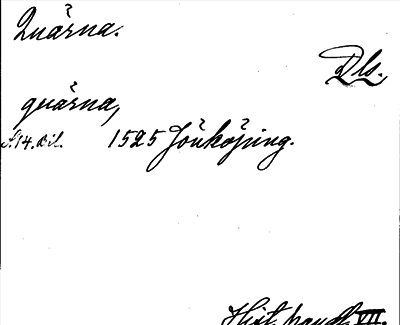 Quärna.
Dls.
quärna,
S. 14. Bil. 1525 Jönköping.
Hist. handl. VII.